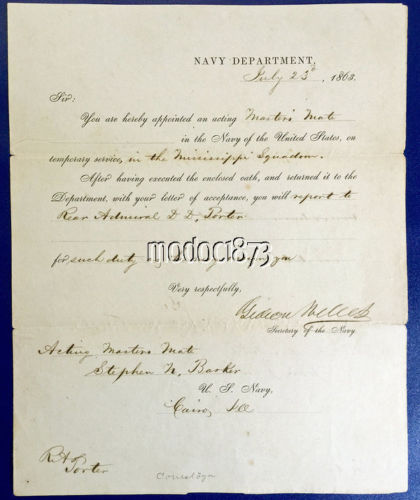 NAVY DEPARTMENT,
July 23d, 1863.
Sir:
You are hereby appointed an acting Master's Mate
in the Navy of the United States, on
temporary service, in the Mississippi Squadron.
After having executed the enclosed oath, and returned it to the
Department, with your letter of acceptance, you will report to
Rear Admiral D. D. Porter
modoc1873
for such duty as he may assign you
Very respectfully,
Gideon Welles
Secretary of the Navy
Acting Masters Mate
Stephen N. Barker
U. S. Navy,
Cairo, Ill
R. A.
Porter